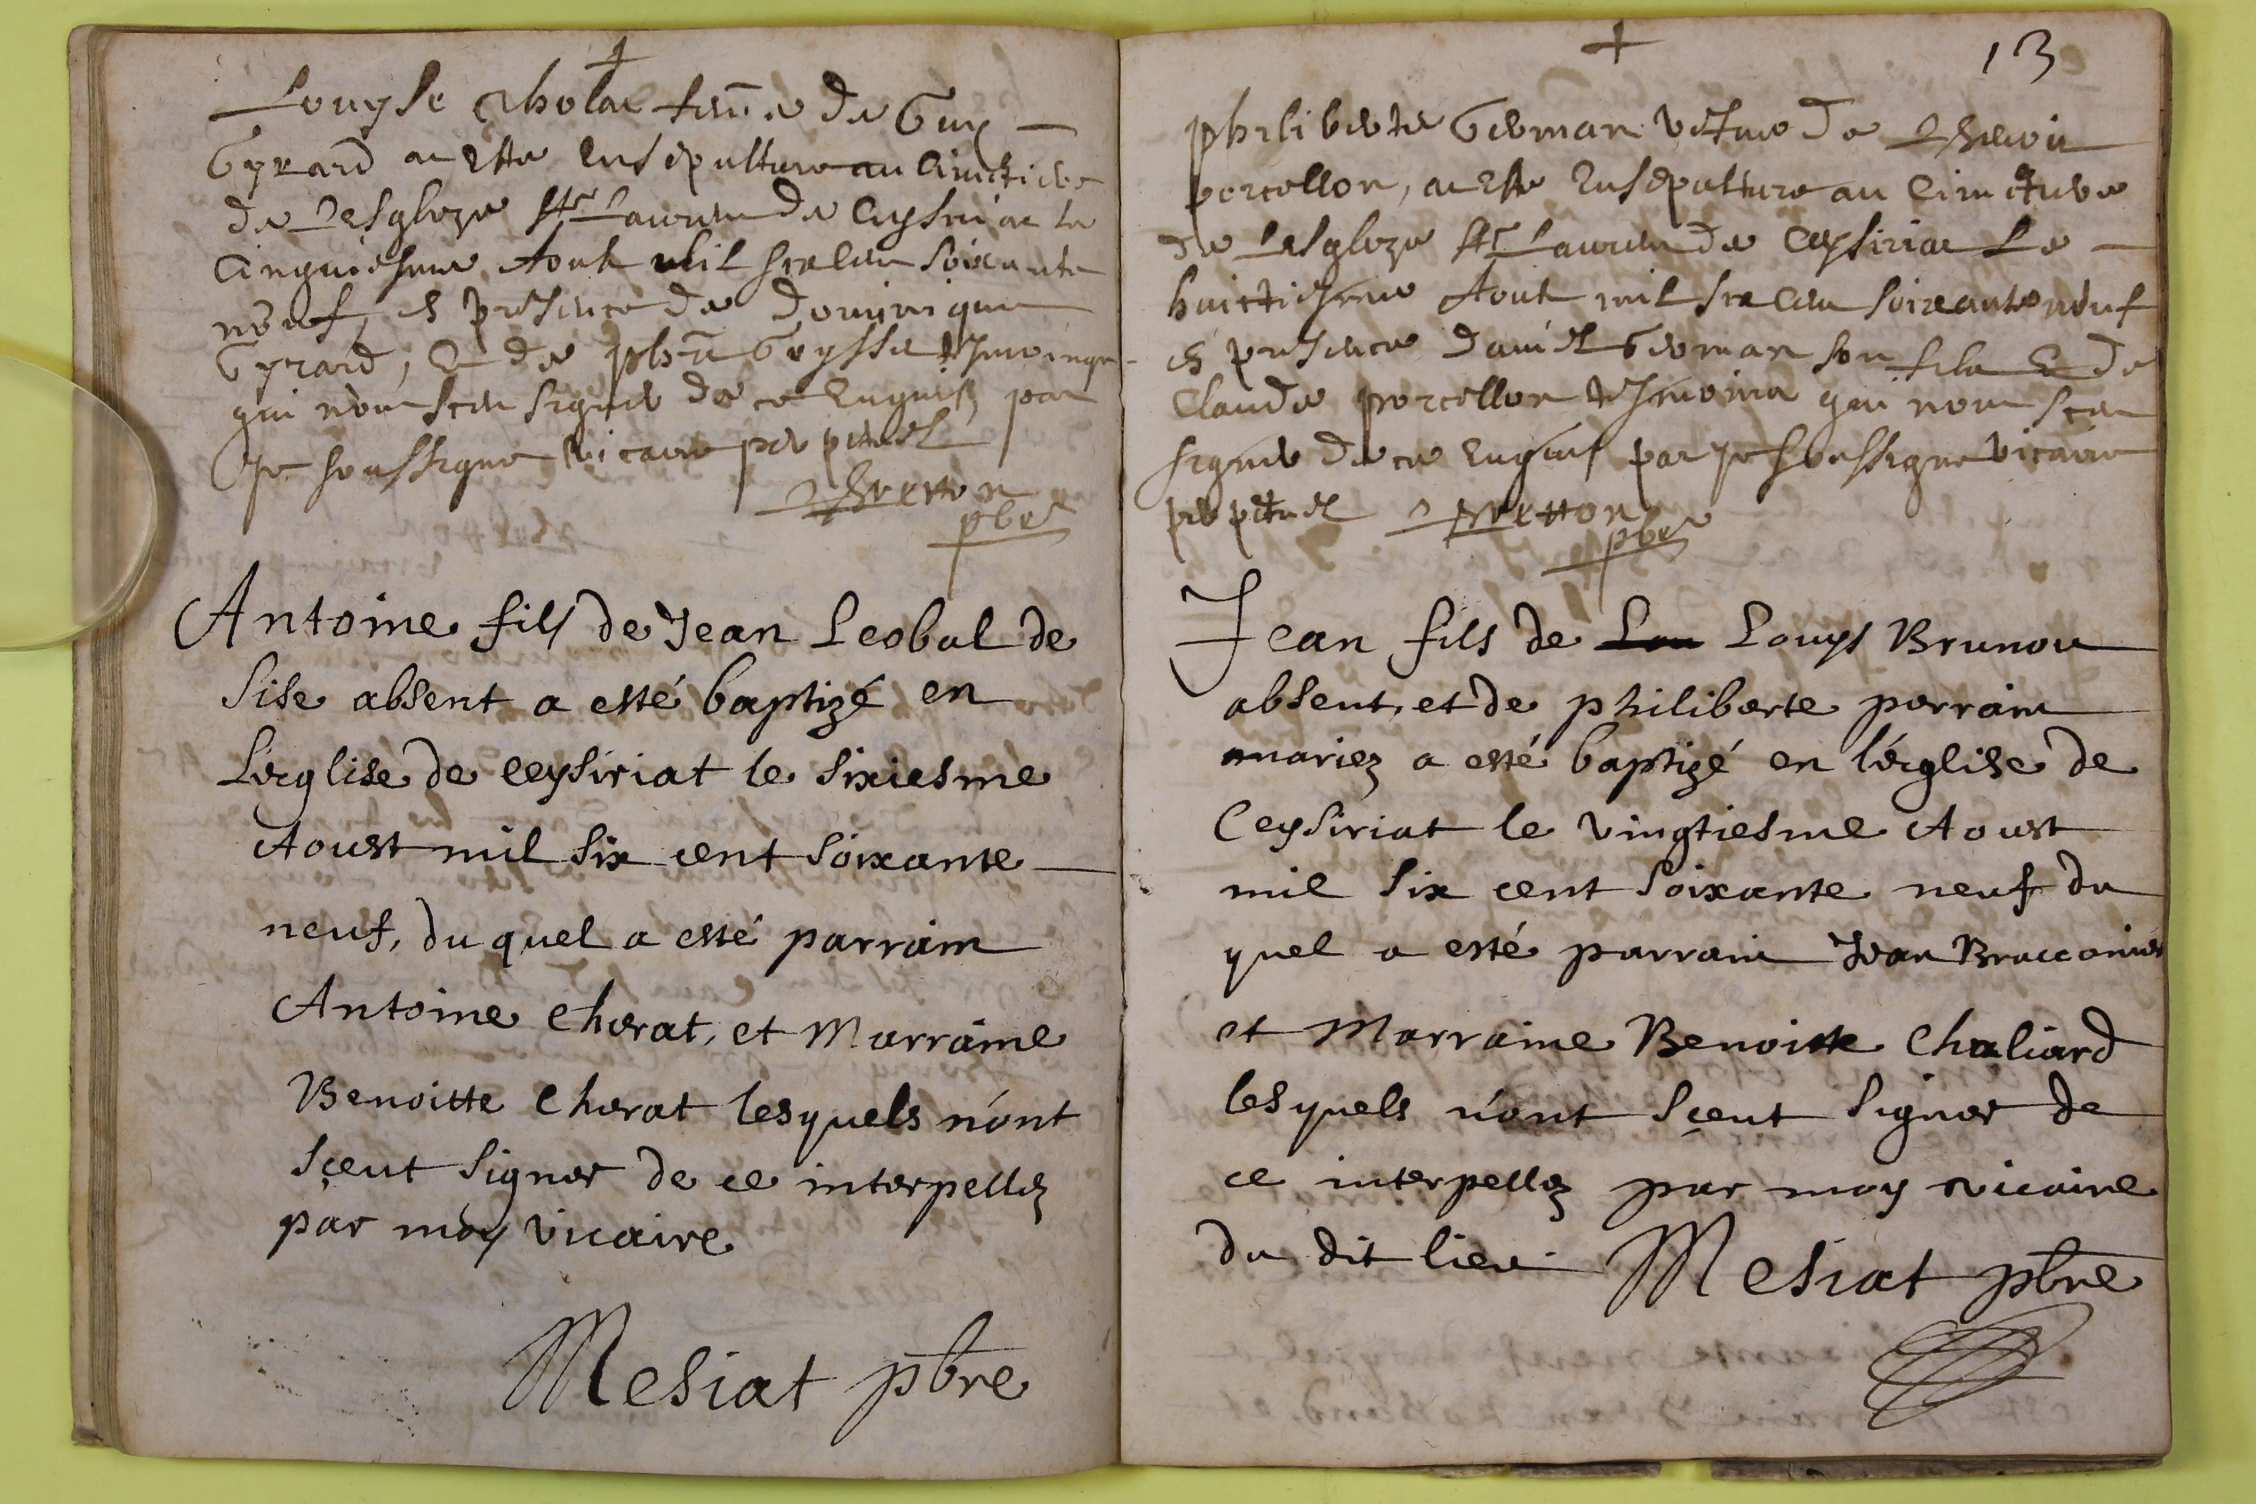 +
Louyse Cholat feme de Guy
Gyrard a este ensepulture au Cimetiere
de Lesgleze St Lauren de Ceysiriac le
Cinquiesme Aout mil six Cen soixante
neuf, en presence de Dominique
Gyrard, et de phn Geysse tesmoings
qui nont sceu signer de ce enquis par
Je soussigne vicaire perpetuel
Bretton
pbre
Antoine fils de Jean Leobal de
Sise absent a esté baptizé en
L'eglise de Ceysiriat le sixiesme
Aoust mil six cent soixante
neuf, du quel a esté parrain
Antoine Cherat, et Marraine
Benoitte Cherat lesquels n'ont
sçeut signer de ce interpellez
par moy vicaire
Mesiat pbre
+ 13
philiberte German vefve de
porcellon, a este Ensepulture au Cimetiere
de Lesgleze St Lauren de Ceysiriac Le
huictiesme Aout mil six Cen soixante neuf
en presence Daniel German son fils et de
Claude porcellon tesmoins qui nont sceu
signer de ce Enquis par Je soussigne vicaire
perpetuel Bretton
pbre
Jean fils de Lou Louys Brunon
absent, et de philiberte perrain
mariez a esté baptizé en l'eglise de
Ceysiriat le vingtiesme Aoust
mil six cent soixante neuf du
quel a esté parrain Jean Bracconier
et Marraine Benoitte Chaliard
lesquels n'ont sçeut signer de
ce interpellez par moy vicaire
du dit lieu Mesiat pbre